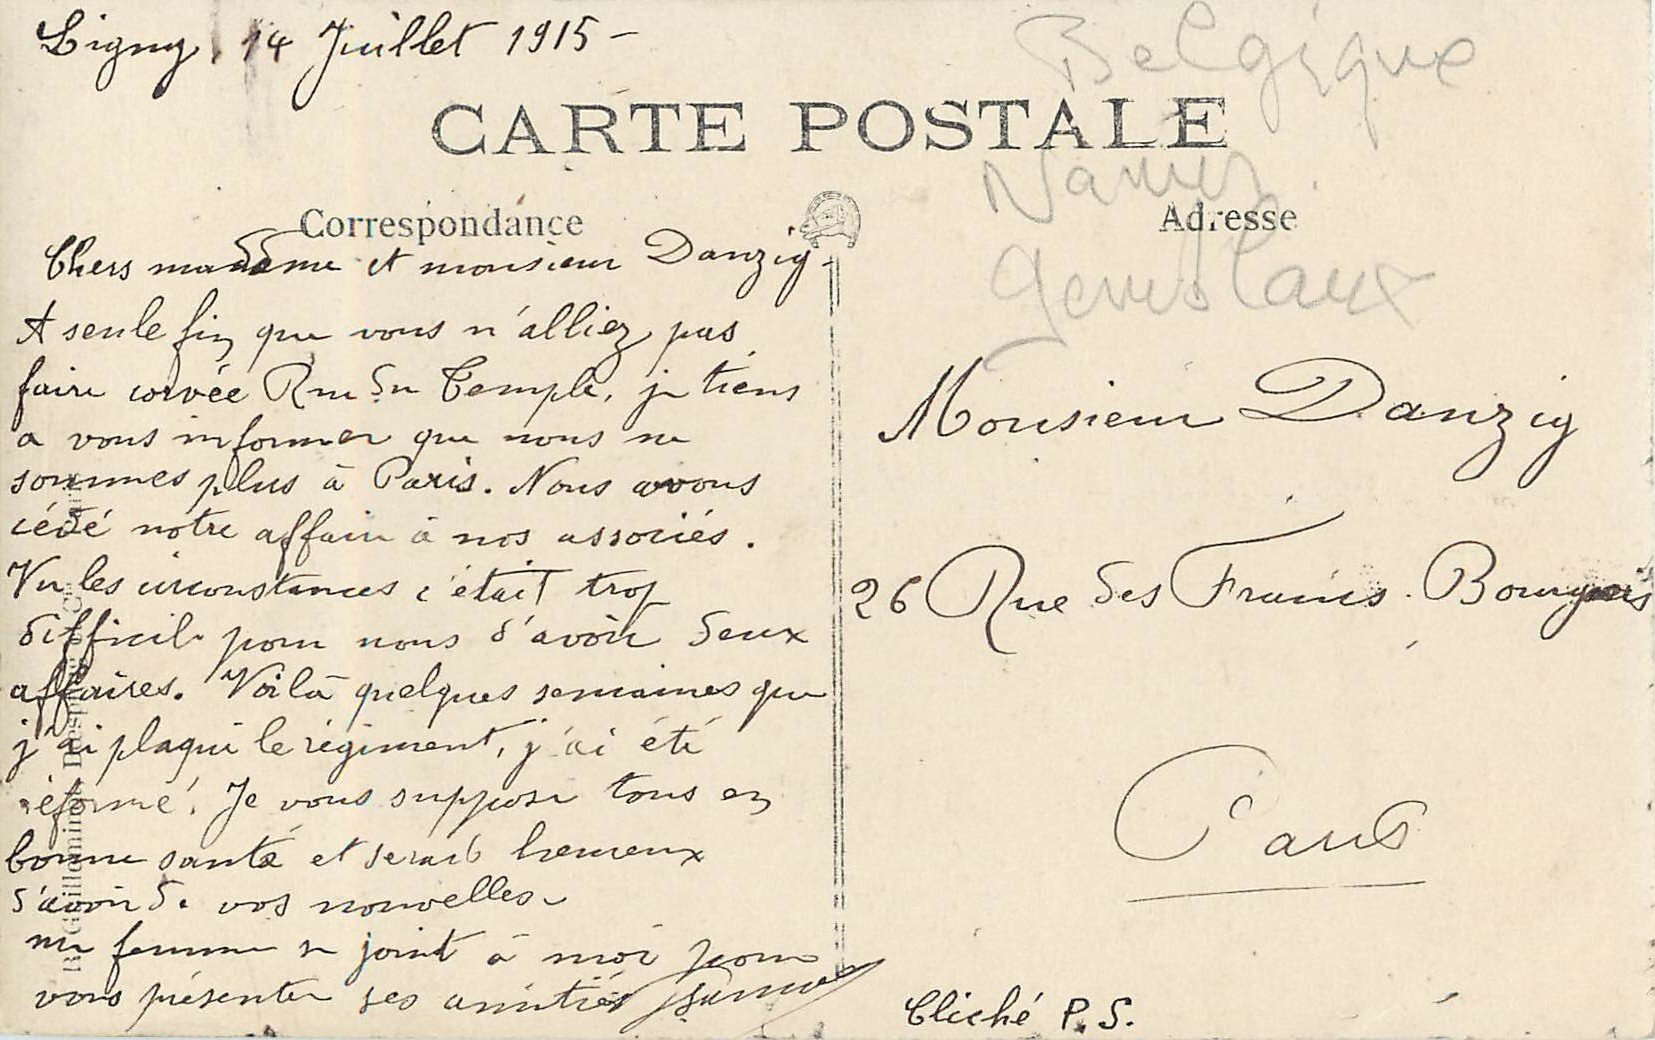 Ligny, 14 Juillet 1915 -
Belgique
CARTE POSTALE
Namur
Gembloux
Correspondance
Adresse
Chers madame et monsieur Danzig.
A seule fin que vous n'alliez pas
faire corvée Rue du Temple, je tiens
a vous informer que nous ne
sommes plus à Paris. Nous avons
cédé notre affaire à nos associés.
Vu les circonstances c'était trop
difficile pour nous d'avoir deux
affaires. Voilà quelques semaines que
j'ai plaqué le régiment, j'ai été
réformé. Je vous suppose tous en
bonne santé et serais heureux
d'avoir de vos nouvelles.
ma femme se joint à moi pour
vous présenter ses amitiés
Monsieur Danzig
26 Rue des Francs. Bourgeois
Paris
Cliché P.S.